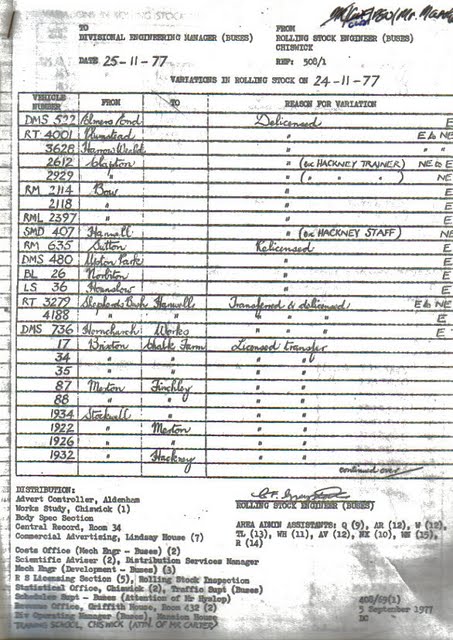 TO FROM
DIVISIONAL ENGINEERING MANAGER (BUSES) ROLLING STOCK ENGINEER (BUSES)
CHISWICK
DATE 25-11-77 REF: 508/1
VARIATIONS IN ROLLING STOCK ON 24-11-77
VEHICLE NUMBER FROM TO REASON FOR VARIATION
DMS 522 Elmers End Delicensed E
RT 4001 Plumstead " E to NE
3628 Harrow Weald " " "
2612 Clapton " (ex HACKNEY TRAINER) NE to E
2929 " " ( " " " ) NE
RM 2114 Bow " E
2118 " " E
RML 2397 " " E
SMD 407 Hanwell " (ex HACKNEY STAFF) NE
RM 635 Sutton Relicensed E
DMS 480 Upton Park " E
BL 26 Norbiton " E
LS 36 Hounslow " E
RT 3279 Shepherds Bush Hanwell Transferred & delicensed E to NE
4188 " " " " " E
DMS 736 Hornchurch Works " " E
17 Brixton Chalk Farm Licensed transfer
34 " " " "
35 " " " "
87 Merton Finchley " "
88 " " " "
1934 Stockwell " " "
1922 " Merton " "
1926 " " " "
1932 " Hackney " "
continued over
DISTRIBUTION:
Advert Controller, Aldenham
Works Study, Chiswick (1)
Body Spec Section
Central Record, Room 34
Commercial Advertising, Lindsay House (7)
Costs Office (Mech Engr - Buses) (2)
Scientific Adviser (2), Distribution Services Manager
Mech Engr (Development - Buses) (3)
R S Licensing Section (5), Rolling Stock Inspection
Statistical Office, Chiswick (2), Traffic Supt (Buses)
Schedules Supt - Buses (Attention of Mr Hyslop)
Revenue Office, Griffith House, Room 432 (2)
Div Operating Manager (Buses), Mansion House
TRAINING SCHOOL, CHISWICK (ATTN. OF MR CARTER)
ROLLING STOCK ENGINEER (BUSES)
AREA ADMIN ASSISTANTS: Q (9), AR (12), W (12),
TL (13), WH (11), AV (12), NX (10), MN (15),
R (14)
408/69(1)
5 September 1977